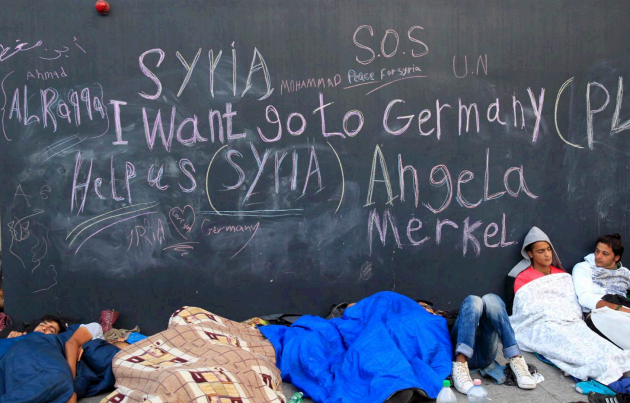 S.O.S
SYRIA
أحمد
Ahmad
MOHAMMAD
Peace For Syria
U.N
ALRaqqa
I Want go to Germany (PL
Help us (SYRIA) Angela
Merkel
SYRIA
Germany